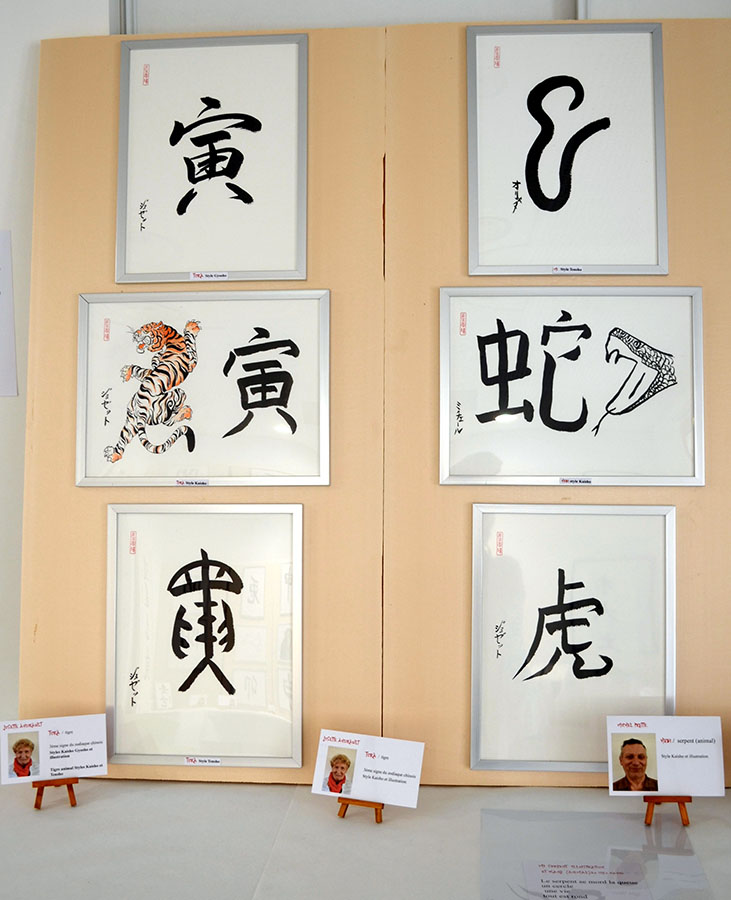 寅
ジョゼット
TORA Style Gyosho
オリメタ
Style Tensho
ジョゼット
寅
TORA Style Kaisho
蛇
ミシェール
style Kaisho
ジョゼット
TORA Style Tensho
虎
ジョゼット
TORA / tigre
3ème signe du zodiaque chinois
Styles Kaisho Gyosho et
illustration
Tigre animal Styles Kaisho et
Tensho
TORA / tigre
3ème signe du zodiaque chinois
Style Kaisho et illustration
/ serpent (animal)
Style Kaisho et illustration
Le serpent se mord la queue
un cercle
une vie
Tout est rond